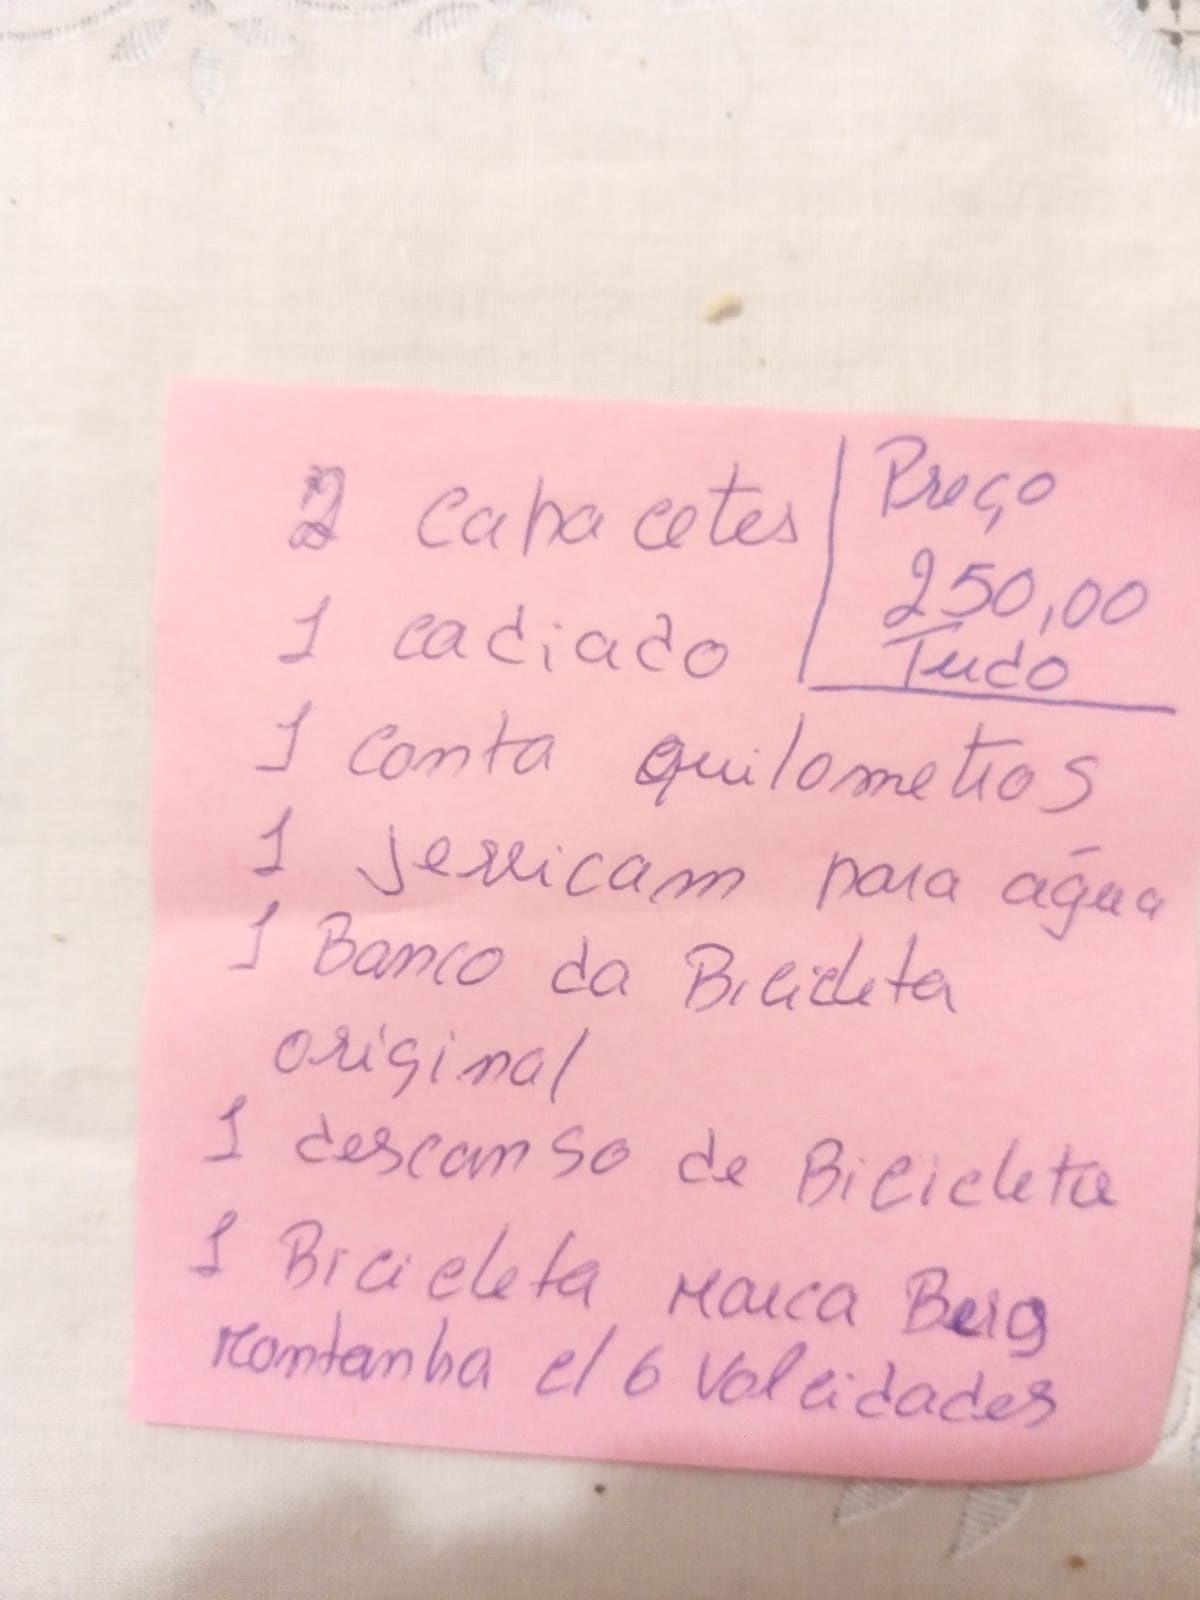 2 Capacetes
Preço
250,00
Tudo
1 cadiado
1 Conta quilometros
1 Jerricam para água
1 Banco da Bicicleta
original
1 descanso de Bicicleta
1 Bicicleta Marca Berg
Montanha c/ 6 Volcidades